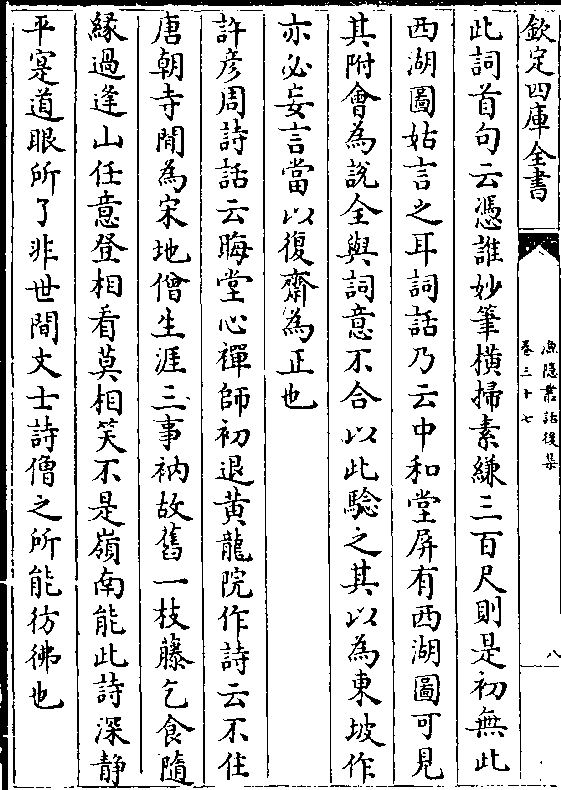 欽定四庫全書
漁隱叢話後集
卷三十七
八
此詞首句云憑誰妙筆橫掃素縑三百尺則是初無此
西湖圖姑言之耳詞話乃云中和堂屏有西湖圖可見
其附會為說全與詞意不合以此驗之其以為東坡作
亦必妄言當以復齋為正也
許彦周詩話云晦堂心禪師初退黄龍院作詩云不住
唐朝寺閒為宋地僧生涯三事衲故舊一枝藤乞食隨
緣過逢山任意登相看莫相笑不是嶺南能此詩深静
平寔道眼所了非世間文士詩僧之所能彷彿也